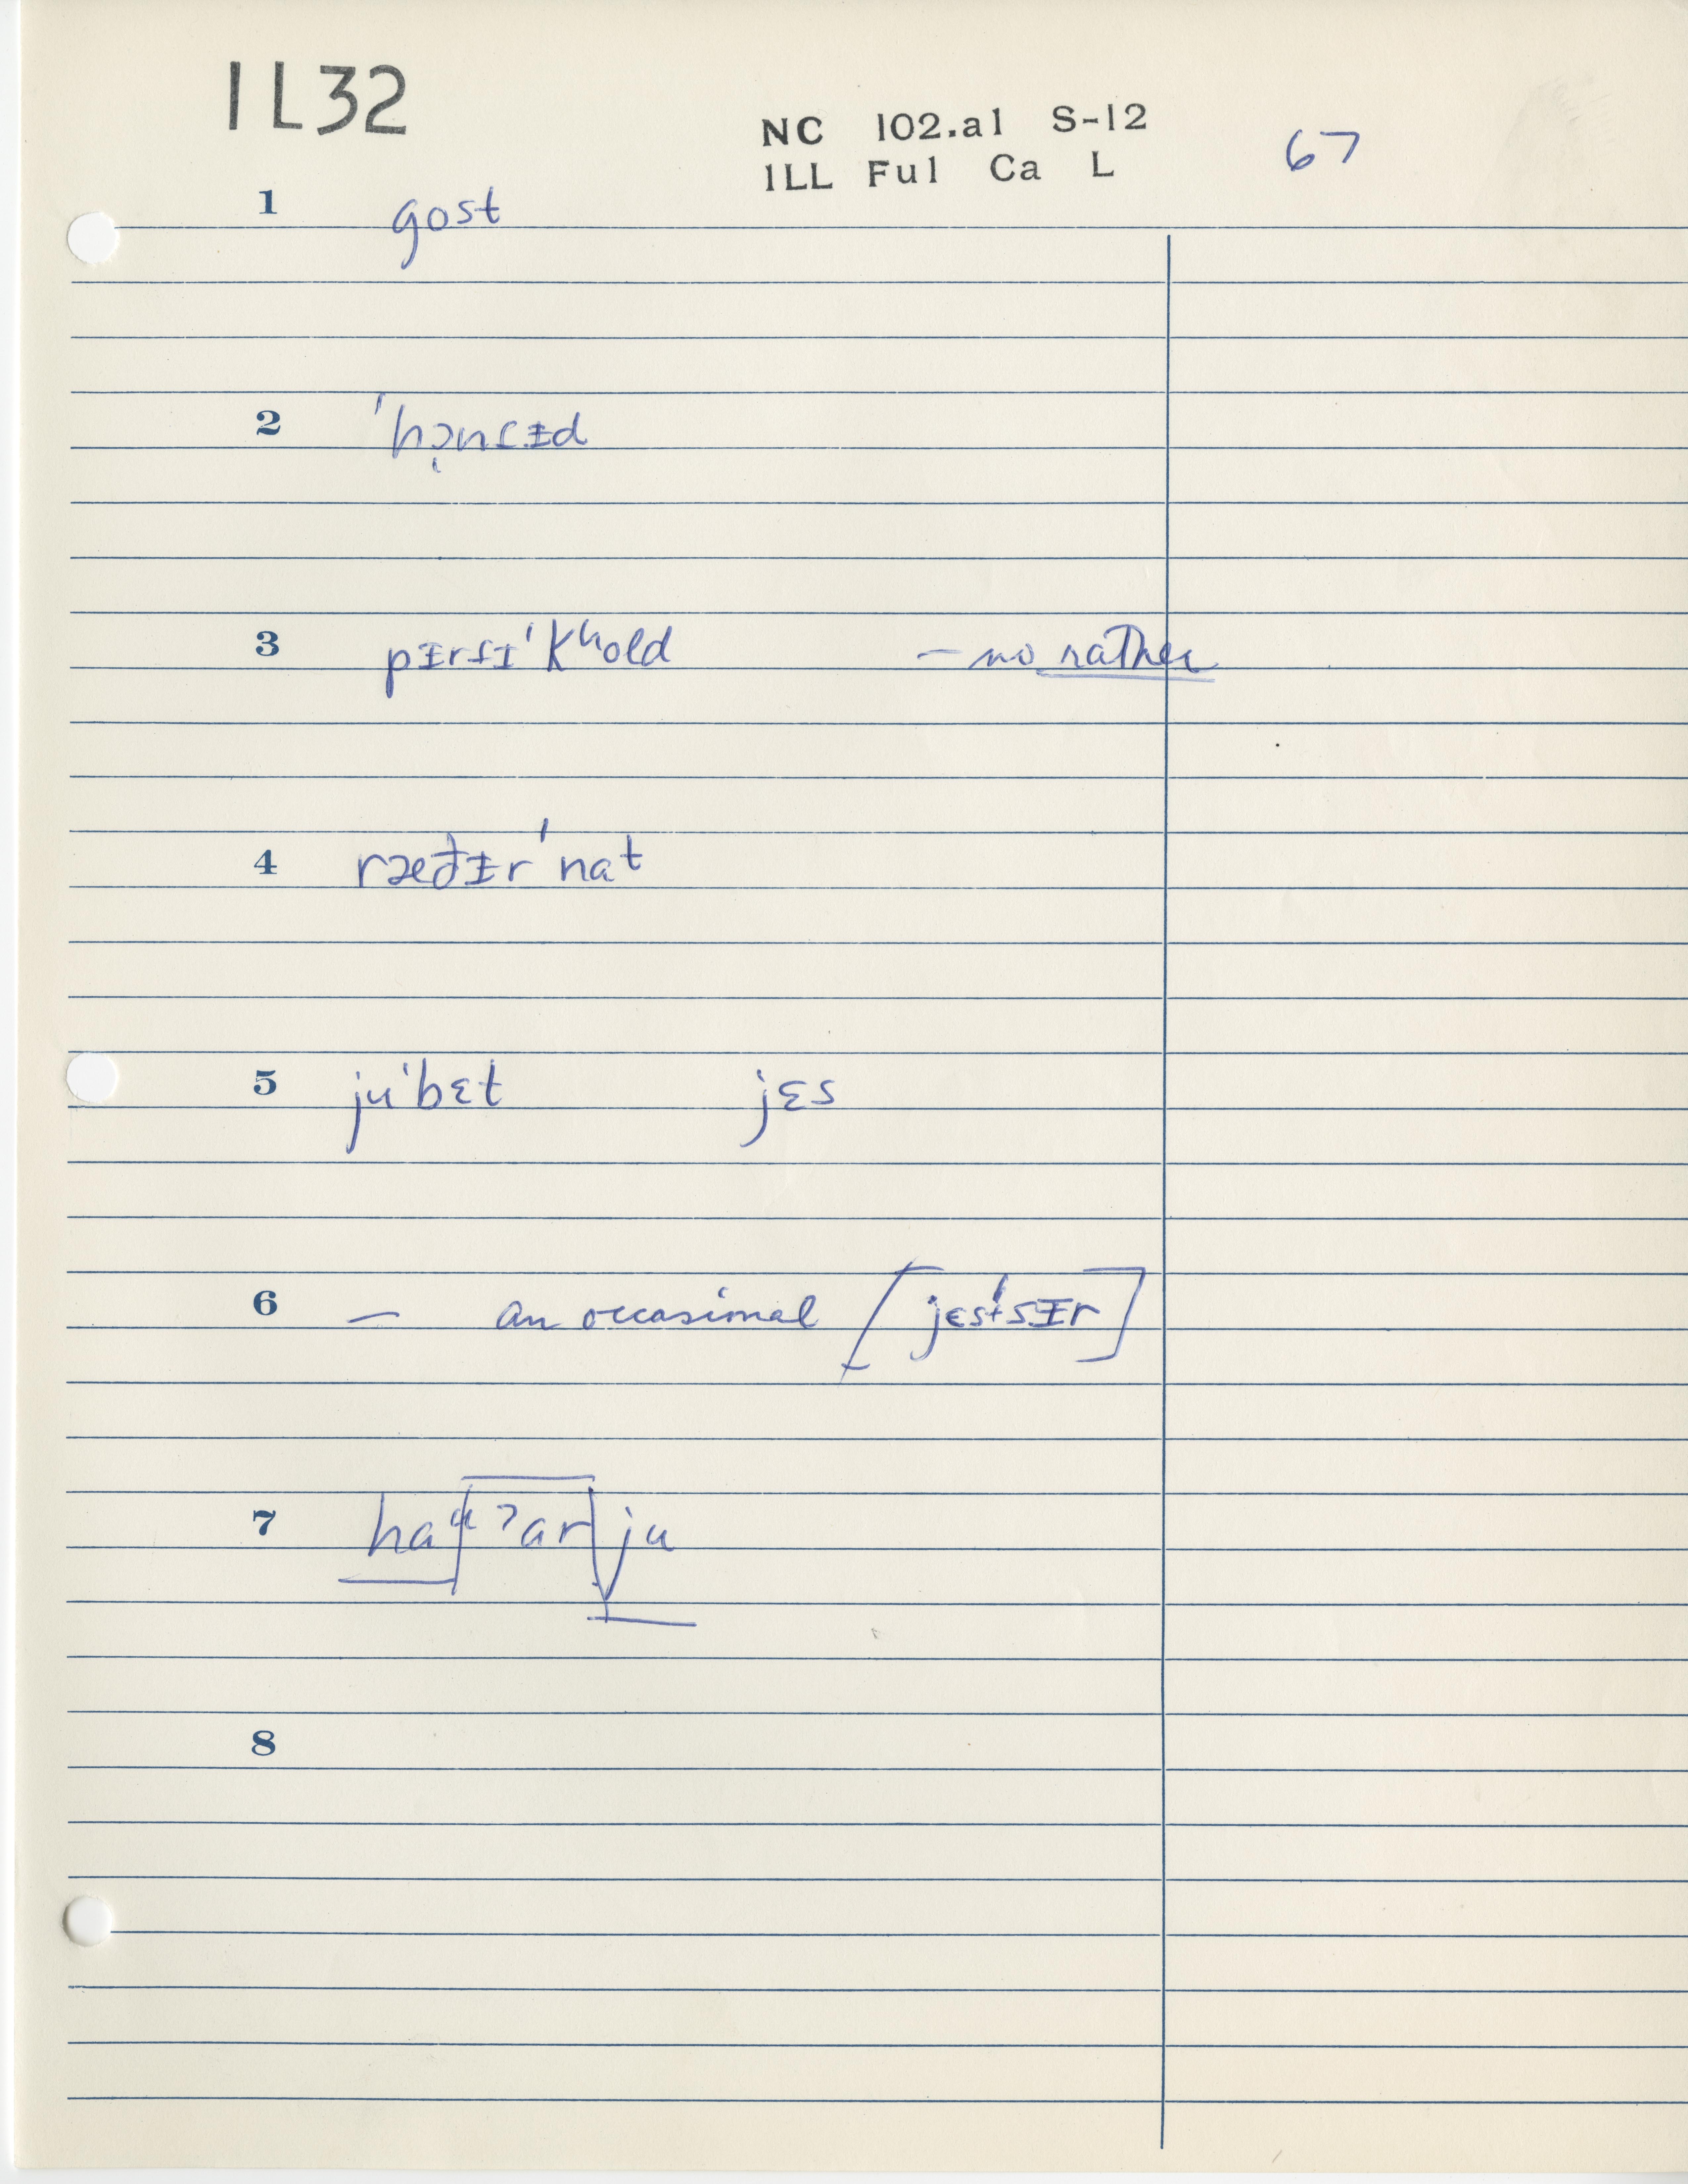 IL32
NC 102.a1 S-12
ILL Ful Ca L
67
1 gost
2 ˈhɔ̩nt̬ᵻd
3 pᵻrt̬ɪˈkʰold — no rather
4 ræðᵻrˈnat
5 juˈbɛt jɛs
6 — an occasional [jɛsˈsᵻr]
7 haᵘ ˀar ju
8